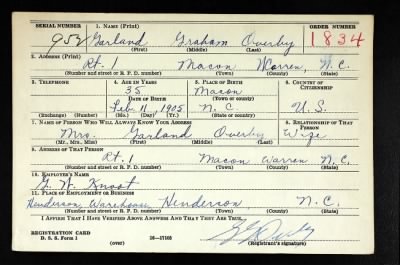 SERIAL NUMBER 1. NAME (Print) ORDER NUMBER
952 Garland Graham Overby 1834
(First) (Middle) (Last)
2. ADDRESS (Print)
Rt. 1 Macon Warren, N.C.
(Number and street or R. F. D. number) (Town) (County) (State)
3. TELEPHONE 4. AGE IN YEARS 5. PLACE OF BIRTH 6. COUNTRY OF CITIZENSHIP
35 Macon
DATE OF BIRTH (Town or county)
Feb. 11, 1905 N.C. U.S.
(Exchange) (Number) (Mo.) (Day) (Yr.) (State or country)
7. NAME OF PERSON WHO WILL ALWAYS KNOW YOUR ADDRESS 8. RELATIONSHIP OF THAT PERSON
Mrs. Garland Overby Wife
(Mr., Mrs., Miss) (First) (Middle) (Last)
9. ADDRESS OF THAT PERSON
Rt. 1 Macon Warren N.C.
(Number and street or R. F. D. number) (Town) (County) (State)
10. EMPLOYER'S NAME
11. PLACE OF EMPLOYMENT OR BUSINESS
Henderson Warehouse Henderson N.C.
(Number and street or R. F. D. number) (Town) (County) (State)
I AFFIRM THAT I HAVE VERIFIED ABOVE ANSWERS AND THAT THEY ARE TRUE.
REGISTRATION CARD
D. S. S. Form 1 (over) 16—17105 (Registrant's signature)